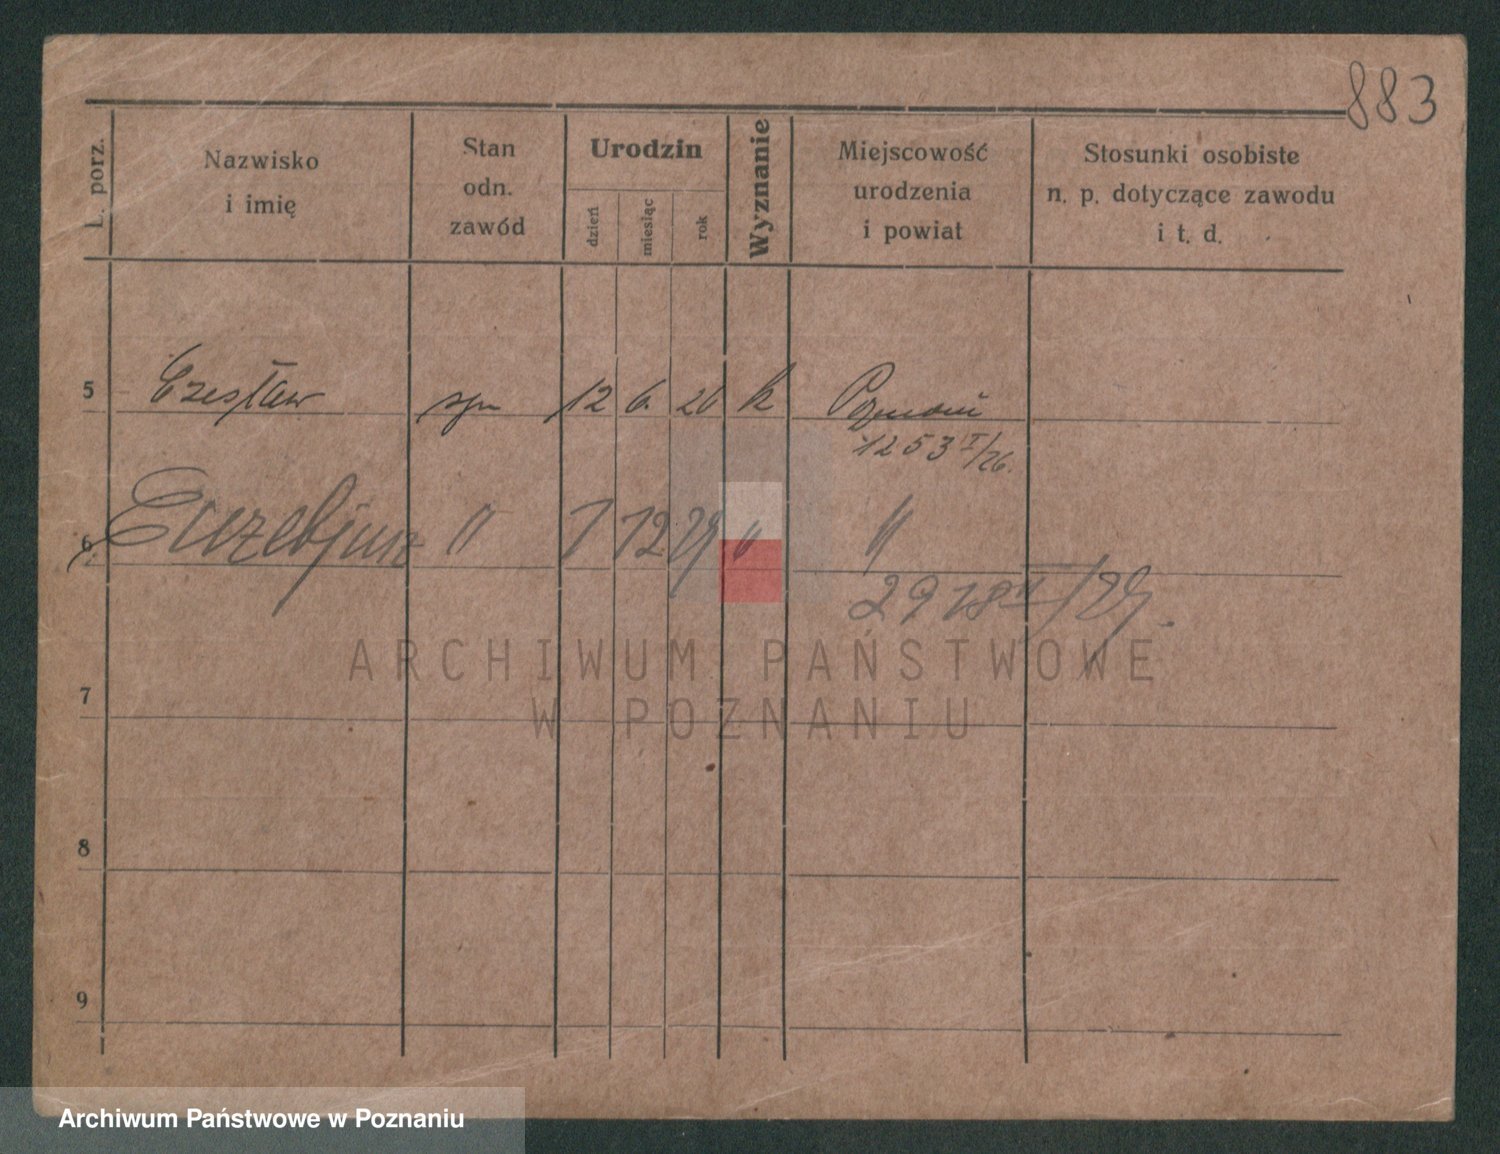 883
L. porz.
Nazwisko
i imię
Stan
odn.
zawód
Urodzin
dzień
miesiąc
rok
Wyznanie
Miejscowość
urodzenia
i powiat
Stosunki osobiste
n. p. dotyczące zawodu
i t. d.
5 Czesław syn 12 6. 26 k Poznań
1253 I/26.
6 Euzebjusz " 1 12 29 " "
2918 II/29.
7
8
9
ARCHIWUM PAŃSTWOWE
W POZNANIU
Archiwum Państwowe w Poznaniu